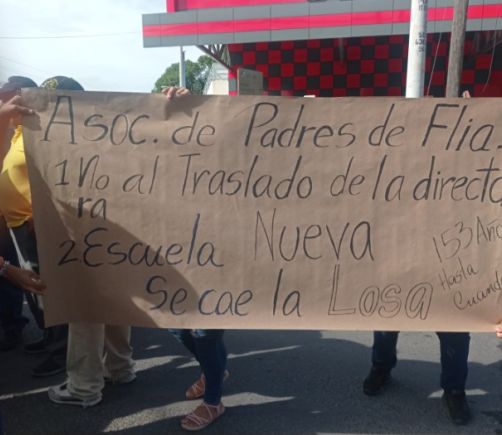 Asoc. de Padres de Flia.
1 No al Traslado de la directo
ra
2 Escuela Nueva
Se cae la Losa
153 Año
Hasta
Cuando